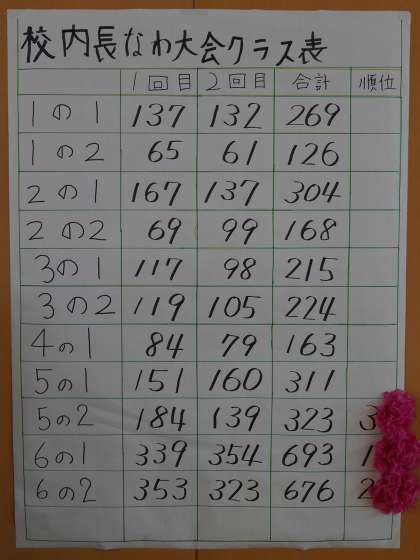 校内長なわ大会クラス表
1回目 2回目 合計 順位
1の1 137 132 269
1の2 65 61 126
2の1 167 137 304
2の2 69 99 168
3の1 117 98 215
3の2 119 105 224
4の1 84 79 163
5の1 151 160 311
5の2 184 139 323 3
6の1 339 354 693 1
6の2 353 323 676 2